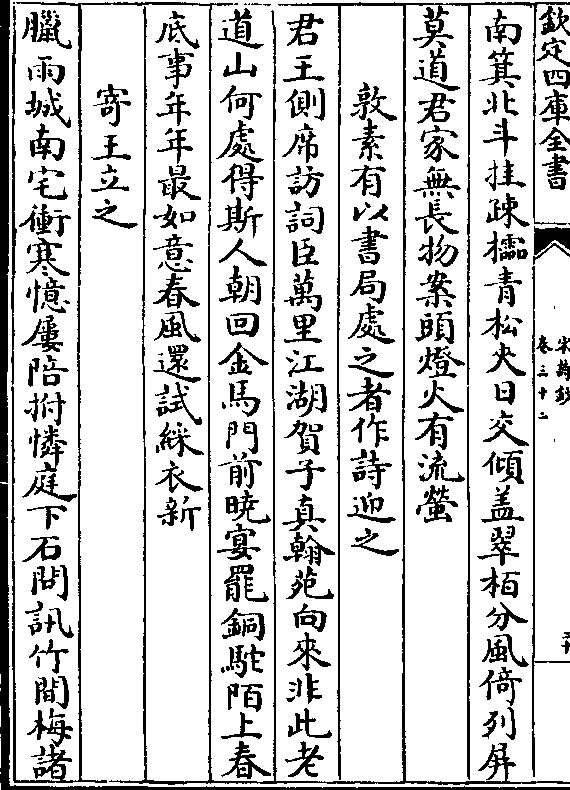 欽定四庫全書
宋詩鈔
卷三十二
南箕北斗挂疎櫺青松夾日交傾盖翠栢分風倚列屏
莫道君家無長物案頭燈火有流螢
敦素有以書局處之者作詩迎之
君王側席訪詞臣萬里江湖賀子真翰苑向來非此老
道山何處得斯人朝回金馬門前曉宴罷銅駝陌上春
底事年年最如意春風還試綵衣新
寄王立之
臘雨城南宅衝寒憶屢陪拊憐庭下石問訊竹間梅諸